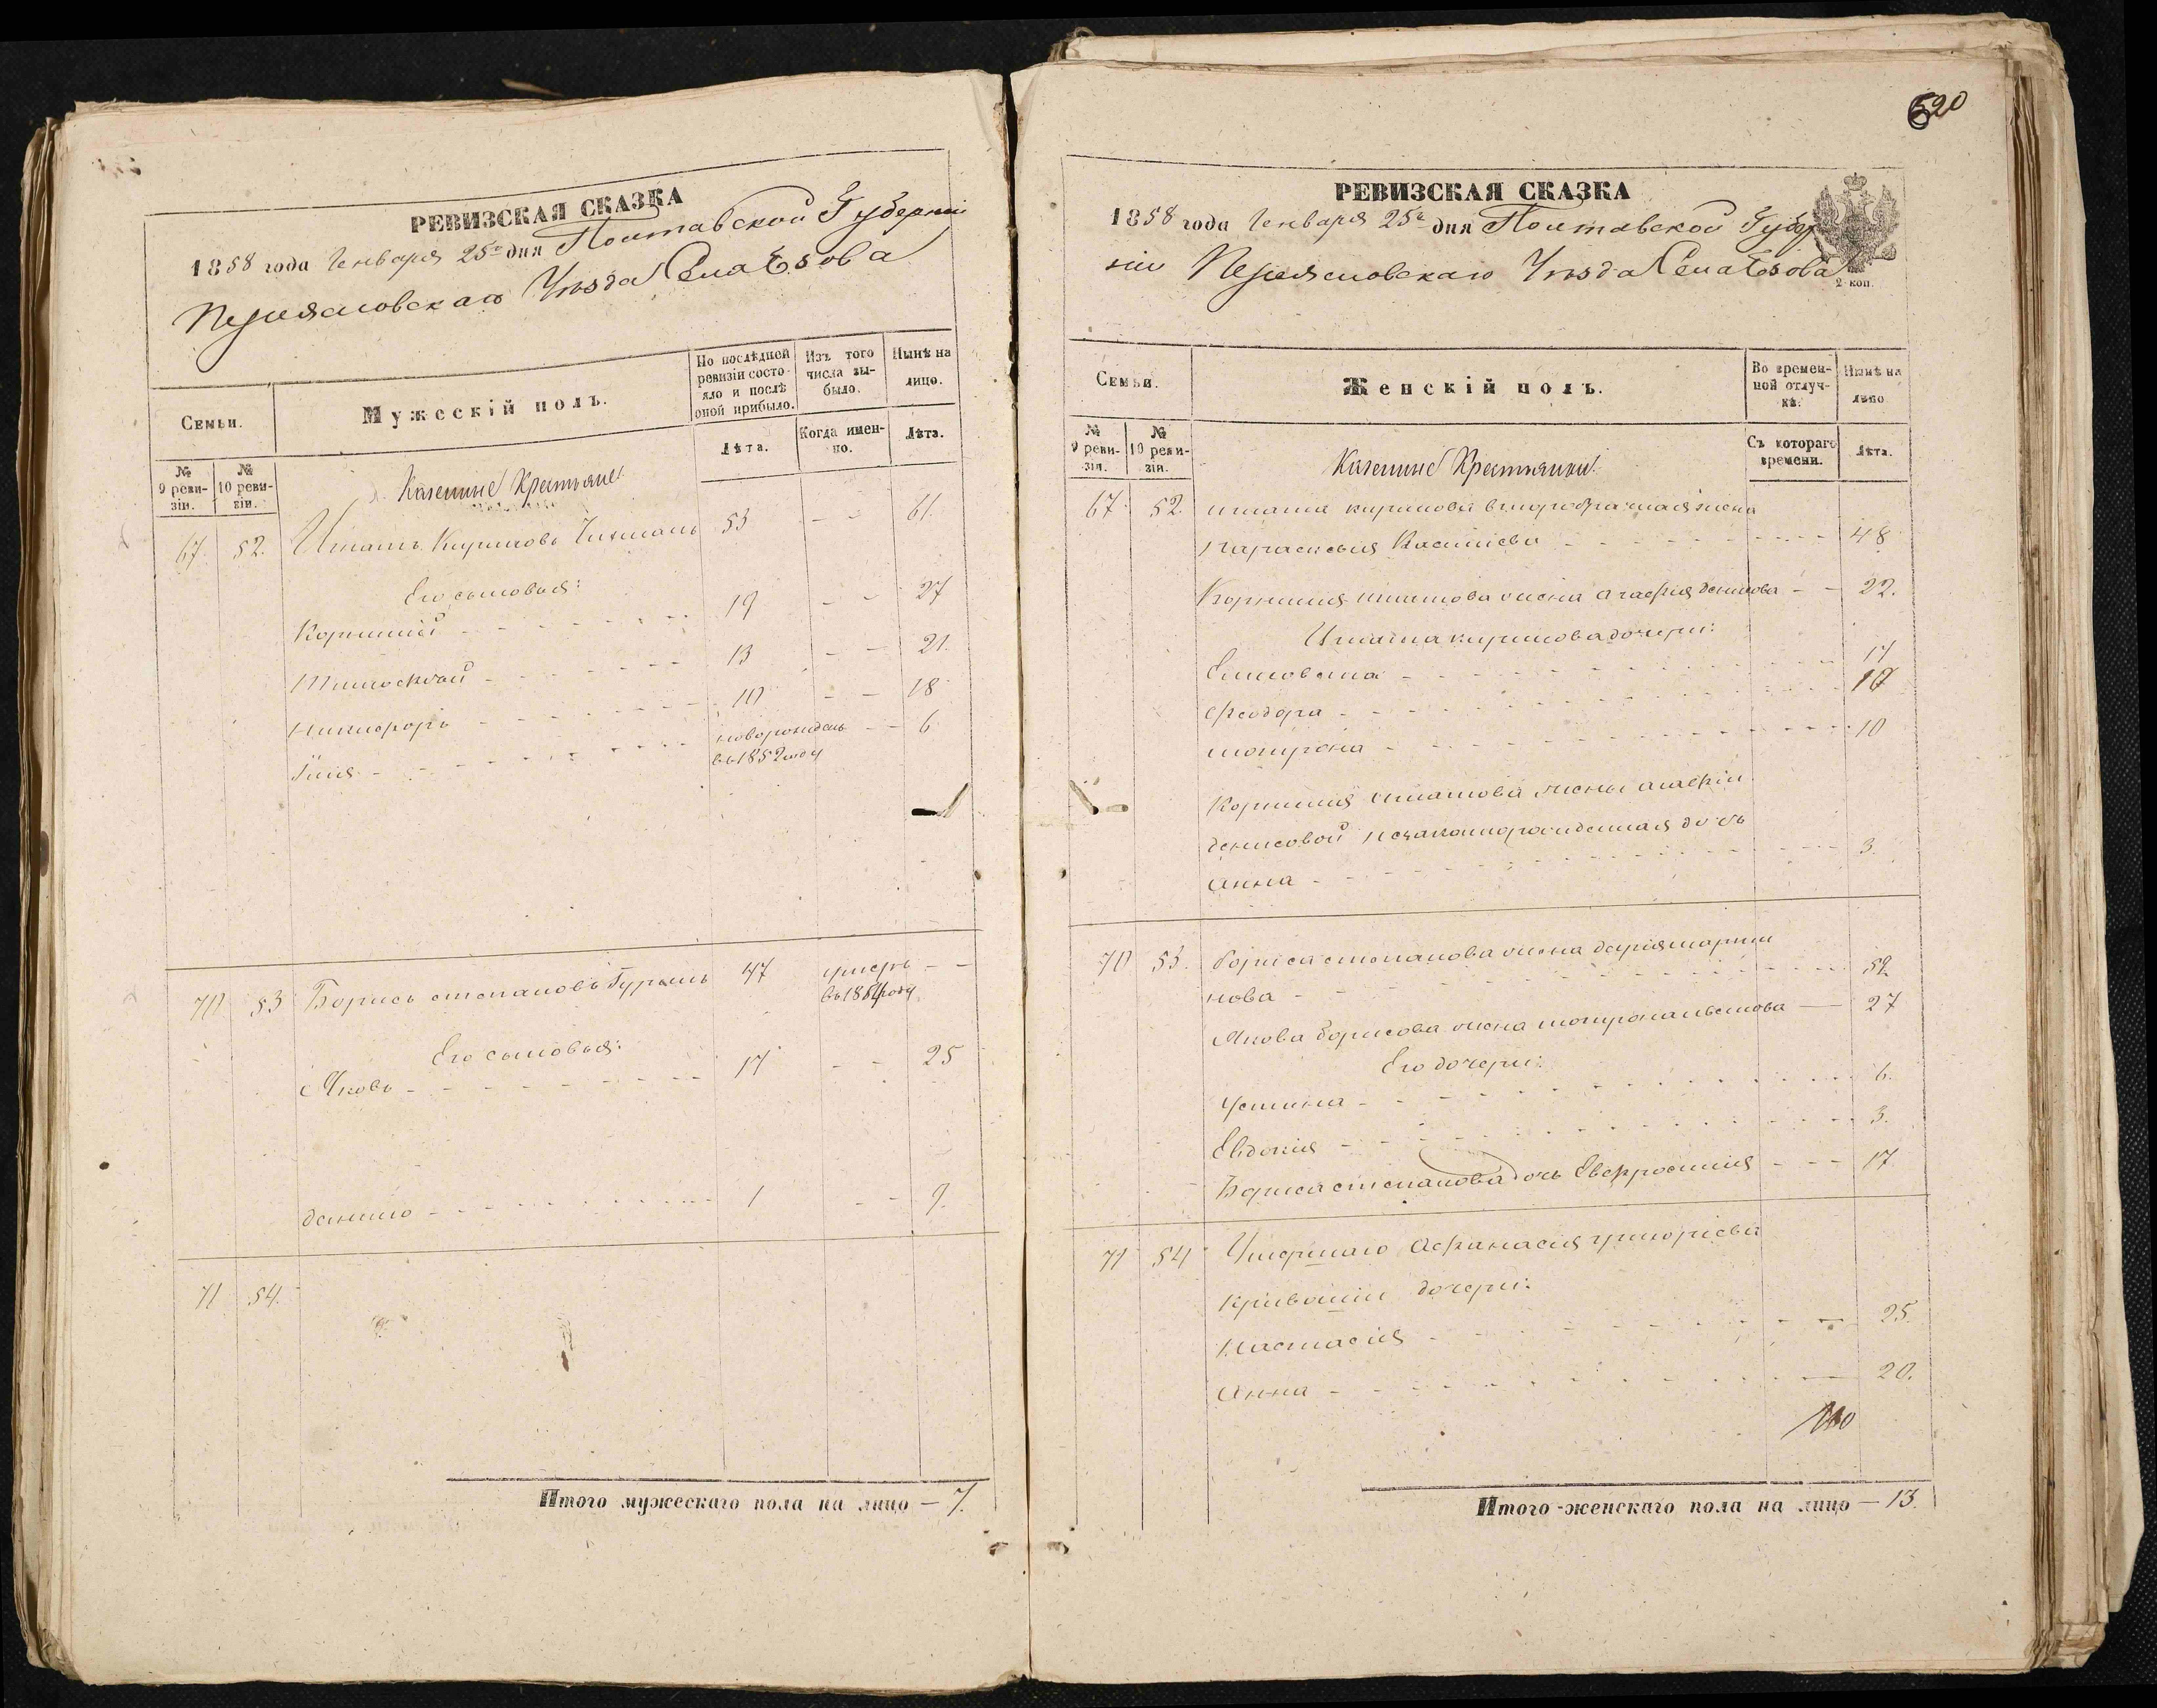 РЕВИЗСКАЯ СКАЗКА
1858 года Генваря 25го дня Полтавской Губерніи
Переясловскаго Уѣзда Села
Семьи.
Мужескій полъ.
По послѣдней ревизіи состояло и послѣ оной прибыло.
Изъ того числа выбыло.
Нынѣ на лицо.
Лѣта.
Когда именно.
Лѣта.
№ 9 ревизіи.
№ 10 ревизіи.
Казенные Крестьяне
67. 52. Кириловъ 53 - - 61.
Его сыновья:
Корнилій - - - 19 - - 27
Тимоѳей - - - 13 - - 21.
Никифоръ - - - 10 - - 18
Илія - - - новорожденъ - - 6
въ 1852 году
70 53 Борисъ степановъ 47 умеръ - -
въ 1854 году
Его сыновья:
Яковъ - - - 17 - - 25
данило - - - 1 - - 9.
71 54.
Итого мужескаго пола на лицо — 7.
520
РЕВИЗСКАЯ СКАЗКА
1858 года Генваря 25го дня Полтавской Губер
ніи Переясловскаго Уѣзда Села
2 коп.
Семьи.
Женскій полъ.
Во временной отлучкѣ.
Нынѣ на лицо
Съ котораго времени.
Лѣта.
№ 9 ревизіи.
№ 10 ревизіи.
Казенные Крестьянки
67. 52. кирилова второбрачная жена
параскевія - - - 48
Корнилія жена агафія денисова - - 22.
кирилова дочери:
Елисовета - - - 17
феодора - - -
мотрона - - - 10
Корнилія жены агафіи
денисовой незаконнорожденная дочь
анна - - - 3.
70 53. бориса степанова жена дарія марти
нова - - - 52
Якова борисова жена мотрона — 27
Его дочери:
Устина - - - 6.
Евдокія - - - 3.
Бориса степанова дочь Евфросинія - - - 17
71 54 Умершаго Афанасія григоріева
дочери:
настасія - - - 25.
анна - - - 20.
Итого женскаго пола на лицо — 13.